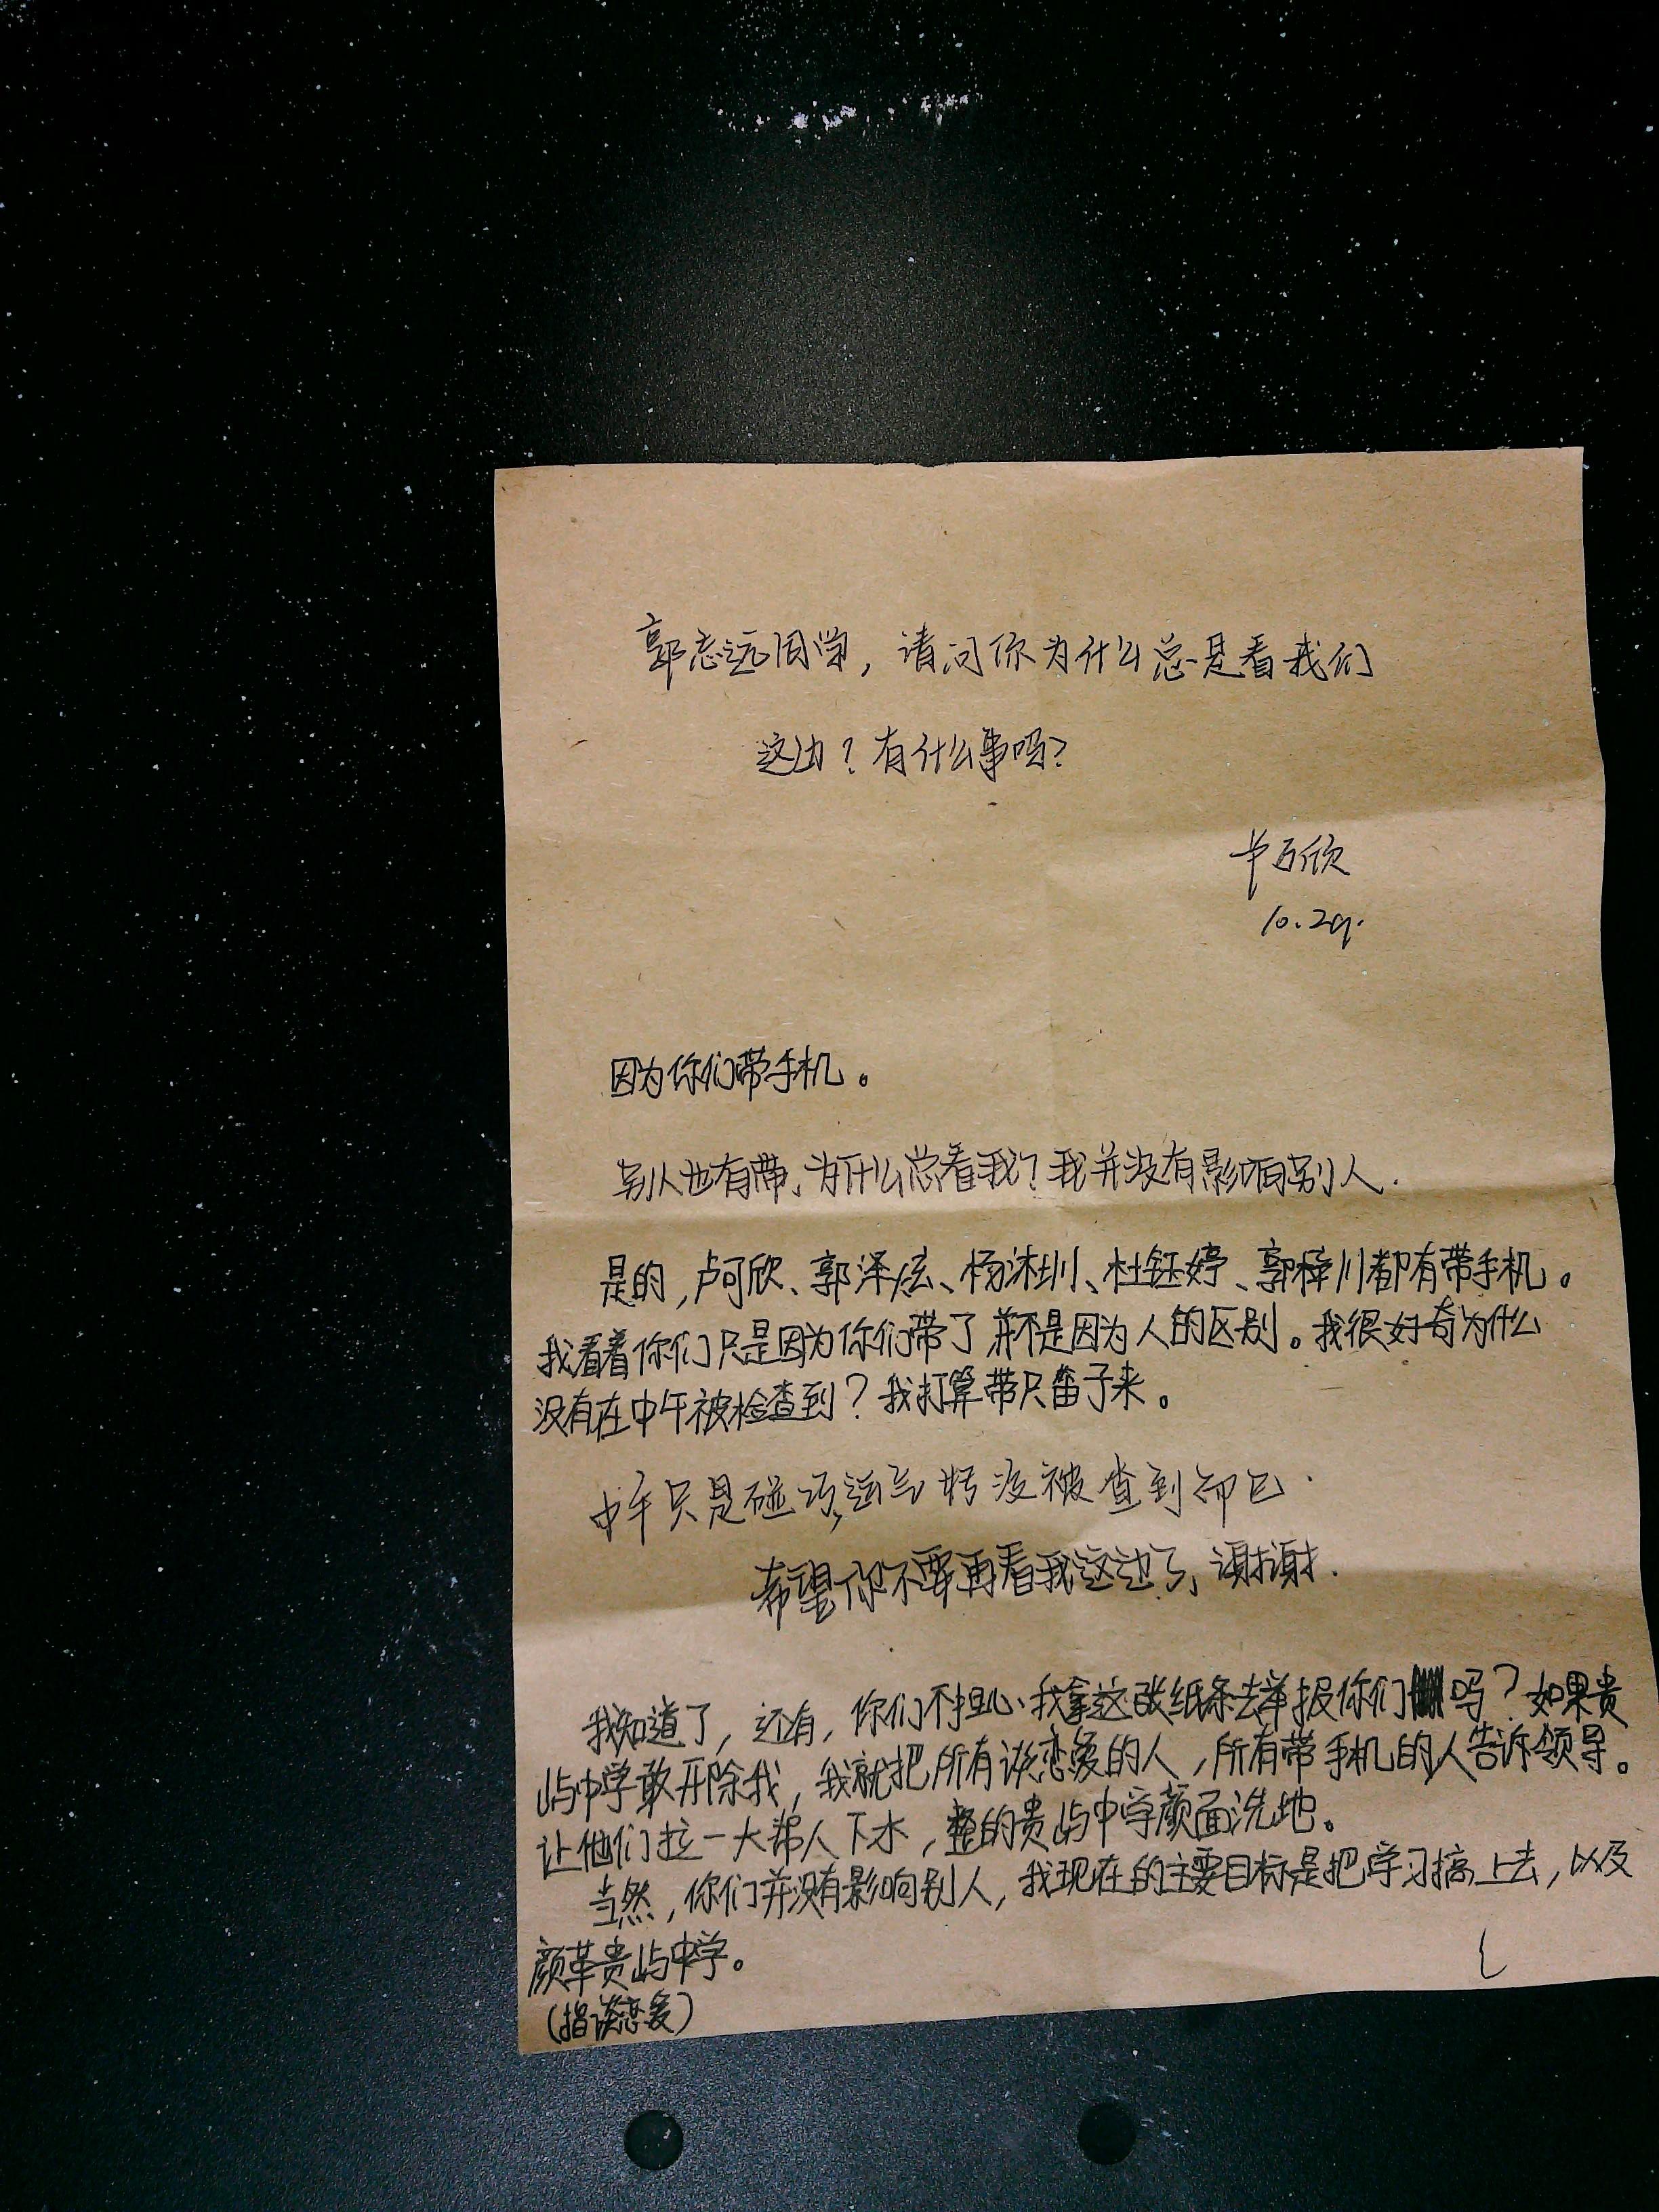 郭志远同学，请问你为什么总是看我们
这边？有什么事吗？
卢可欣
10.29.
因为你们带手机。
别人也有带，为什么总看我？我并没有影响别人.
是的，卢可欣、郭泽炫、杨沐圳、杜钰婷、郭梓川都有带手机。
我看着你们只是因为你们带了并不是因为人的区别。我很好奇为什么
没有在中午被检查到？我打算带只笛子来。
中午只是碰巧,运气好没被查到而已.
希望你不要再看我这边了,谢谢.
我知道了，还有，你们不担心我拿这张纸条去举报你们吗？如果贵
屿中学敢开除我，我就把所有谈恋爱的人，所有带手机的人告诉领导。
让他们拉一大帮人下水，整的贵屿中学颜面洗地。
当然，你们并没有影响别人，我现在的主要目标是把学习搞上去，以及
颜革贵屿中学。
（指谈恋爱）